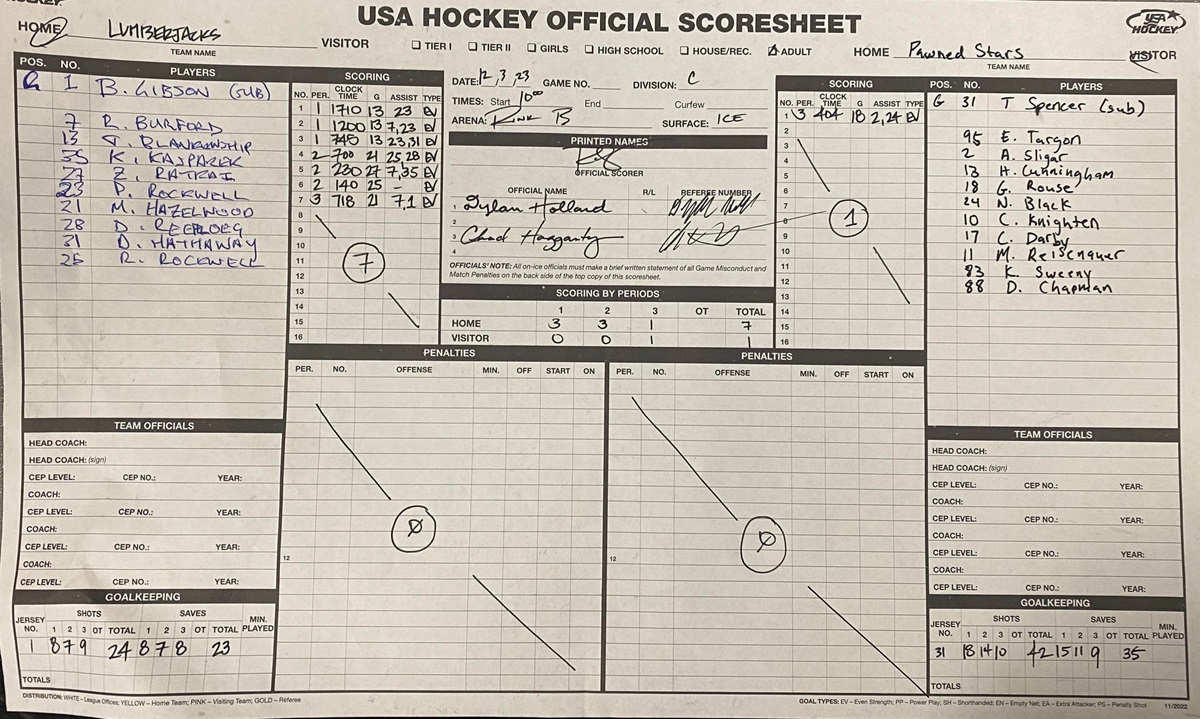 HOCKEY
USA HOCKEY OFFICIAL SCORESHEET
USA HOCKEY
HOME LUMBERJACKS VISITOR
TEAM NAME
☐ TIER I ☐ TIER II ☐ GIRLS ☐ HIGH SCHOOL ☐ HOUSE/REC. ☑ ADULT
HOME Pawned Stars VISITOR
TEAM NAME
POS. NO. PLAYERS
G 1 B. GIBSON (SUB)
7 R. BURFORD
13 T. BLANKINSHIP
35 K. KASPAREK
27 Z. RATKAI
23 P. ROCKWELL
21 M. HAZELWOOD
28 D. REEPLOEG
31 D. HATHAWAY
25 R. ROCKWELL
SCORING
NO. PER. CLOCK TIME G ASSIST TYPE
1 1 1710 13 23 EV
2 1 1200 13 7,23 EV
3 1 745 13 23,31 EV
4 2 700 21 25,28 EV
5 2 230 27 7,35 EV
6 2 140 25 - EV
7 3 718 21 7,1 EV
8
9
10
11
12
13
14
15
16
7
DATE: 12,3,23 GAME NO. DIVISION: C
TIMES: Start 10:00 End Curfew
ARENA: RINK B SURFACE: ICE
PRINTED NAMES
OFFICIAL SCORER
OFFICIAL NAME R/L REFEREE NUMBER
1 Dylan Holland
2
3 Chad Hagganty
4
OFFICIALS' NOTE: All on-ice officials must make a brief written statement of all Game Misconduct and
Match Penalties on the back side of the top copy of this scoresheet.
SCORING BY PERIODS
1 2 3 OT TOTAL
HOME 3 3 1 7
VISITOR 0 0 1 1
SCORING
NO. PER. CLOCK TIME G ASSIST TYPE
1 3 404 18 2,24 EV
2
3
4
5
6
7
8
9
10
11
12
13
14
15
16
1
POS. NO. PLAYERS
G 31 T Spencer (sub)
95 E. Targon
2 A. Sligar
13 H. Cunningham
18 G. Rouse
24 N. Black
10 C. Knighten
17 C. Darby
11 M. Reisenauer
83 K. Sweeny
88 D. Chapman
PENALTIES
PER. NO. OFFENSE MIN. OFF START ON
0
12
PENALTIES
PER. NO. OFFENSE MIN. OFF START ON
0
12
TEAM OFFICIALS
HEAD COACH:
HEAD COACH: (sign)
CEP LEVEL: CEP NO.: YEAR:
COACH:
CEP LEVEL: CEP NO.: YEAR:
COACH:
CEP LEVEL: CEP NO.: YEAR:
COACH:
CEP LEVEL: CEP NO.: YEAR:
GOALKEEPING
SHOTS SAVES
JERSEY NO. 1 2 3 OT TOTAL 1 2 3 OT TOTAL MIN. PLAYED
1 8 7 9 24 8 7 8 23
TOTALS
TEAM OFFICIALS
HEAD COACH:
HEAD COACH: (sign)
CEP LEVEL: CEP NO.: YEAR:
COACH:
CEP LEVEL: CEP NO.: YEAR:
COACH:
CEP LEVEL: CEP NO.: YEAR:
COACH:
CEP LEVEL: CEP NO.: YEAR:
GOALKEEPING
SHOTS SAVES
JERSEY NO. 1 2 3 OT TOTAL 1 2 3 OT TOTAL MIN. PLAYED
31 18 14 10 42 15 11 9 35
TOTALS
DISTRIBUTION: WHITE – League Offices; YELLOW – Home Team; PINK – Visiting Team; GOLD – Referee
GOAL TYPES: EV – Even Strength; PP – Power Play; SH – Shorthanded; EN – Empty Net; EA – Extra Attacker; PS – Penalty Shot 11/2022